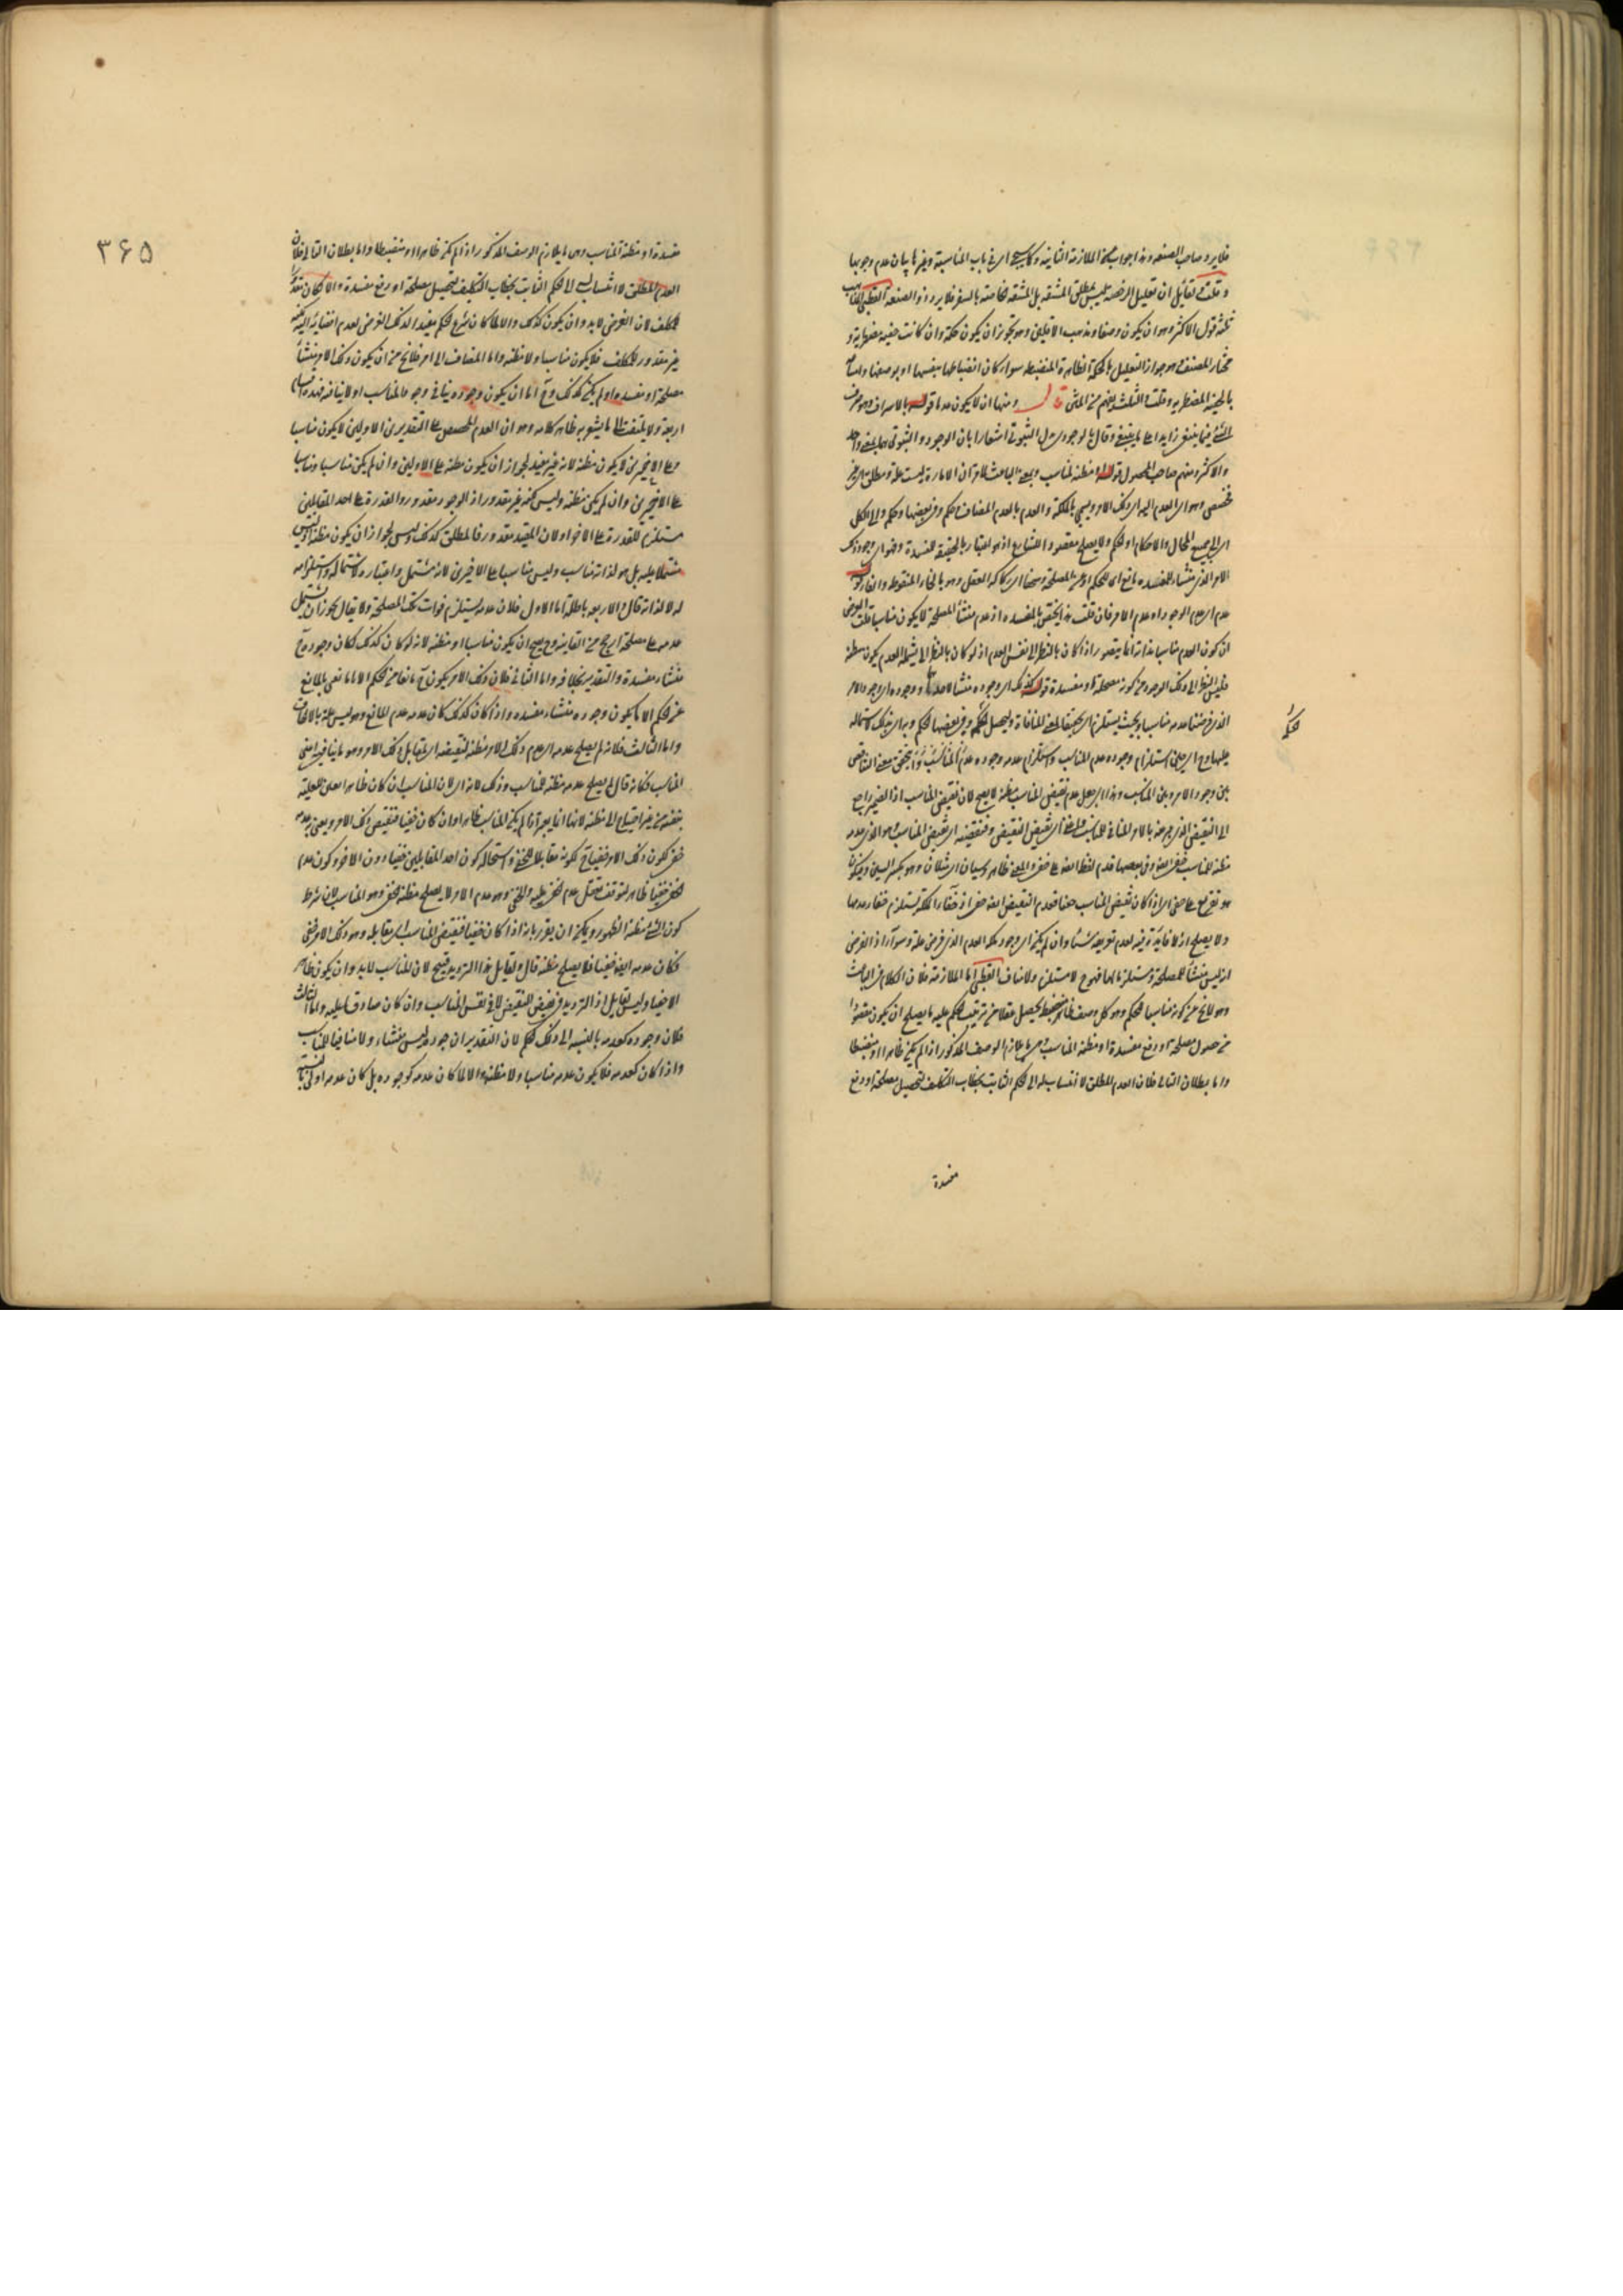 فلا يرد صاحب الصنعه وهذا جواب منع الملازمة الثانية وكما سيجئ اى فى باب المناسبة وغيرها بيان عدم وجوبها
وقلت لقائل ان تعليل الرخصة ليس بمطلق المشقة بل المشقة خاصة بالسفر فلا يرد ذو الصنعة القطبى المذاهب
ثلثة قول الاكثر وهو ان يكون وصفا ومذهب الاقلين وهو تجويز ان يكون حكمة وان كانت خفية مضطربة و
مختار المصنف وهو جواز التعليل بالحكمة الظاهرة المنضبطة سواء كان انضباطها بنفسها او بوصفها
بالخفية المضطربة وقلت الثلث يفهم من المتن قال ومنها ان لا يكون عدما قوله بالاسراف وهو صرف
الشئ فيما ينبغى زايدا على ما ينبغى وقال بالوجودى بدل الثبوتى اشعارا بان الوجودى والثبوتى بمعنى واحد
والاكثر ومنهم صاحب المحصول قوله او مظنة لمناسب وبمعنى الباعث لما مر ان الامارة ليست علة ومطلق اى غير
مخصص وهو اى العدم اليه اى ذلك الامر ويسمى بالملكة والعدم بالعدم المضاف لحكم وفى بعضها وحكم والى الكل
اى الى جميع المحال والاحكام او لحكم ولا يصلح مقصودا للشارع اذ هو اعتبار بالحقيقة للمفسدة وهو اى وجود ذلك
الامر الذى منشاء للمفسده مانع اى للحكم او عدم المصلحة
عدم اى عدم الوجود او عدم الامر فان قلت هذا يختص بالمفسدة اذ عدم منشأ المصلحة لا يكون مناسبا قلت الغرض
ان كون العدم مناسبا بذاته انما يتصور اذا كان بالنظر الى نفس العدم اذ لو كان بالنظر الى ما يشمله العدم يكون مظنة
فليس النظر الى ذلك الوجود من كونه مصلحة او مفسدة قوله كذلك اى وجوده منشأ لاحدهما ووجوده اى وجود الامر
الذى فرضنا عدمه مناسبا وبحيث يستلزم اى تحقيقا لمعنى المنافاة وليحصل الحكم وفى بعضها لحكم وبه اى بذلك لاشتماله
عليها وح اى حين استلزام وجوده عدم المناسب واستلزام عدمه وجوده عدم المناسب وان تحقق معنى التناقض
بين وجود الامر وبين المناسب وهذا اى جعل عدم نقيض المناسب مظنة لا يصح لان نقيض المناسب اذ الضمير راجع
الى النقيض الذى عبر عنه بالامر المنافى للمناسب ولفظة أى نقيض النقيض ونقيضه اى نقيض المناسب وهو الذى عدمه
مظنة للمناسب خفى ايضا وفى بعضها قدم لفظ ايضا على خفى والمعنى ظاهر وسيان اى مثلان وهو بكسر السين ويكون
هو تفريع على خفى اى اذا كان نقيض المناسب خفيا فعدم النقيض ايضا خفى اذ خفاء الملكة يستلزم خفاء عدمها
ولا يصلح اذ لا فائدة فيه لعدم تعريفه شيئا وان لم يكن اى وجود ملكة العدم الذى فرض علة وسواء اذ الفرض
انه ليس منشأ للمصلحة ومستلزما لها فهو ح لا مستلزم ولا مناف القطبى اما الملازمة فلان الكلام فى الباعث
وهو لا يخ عن كونه مناسبا للحكم وهو كل وصف ظاهر منضبط يحصل عقلا من ترتيب الحكم عليه ما يصلح ان يكون مقصودا
من حصول مصلحة او دفع مفسدة او مظنة المناسب وهى ما يلازم الوصف المذكور اذا لم يكن ظاهرا او منضبطا
واما بطلان التالى فلان العدم المطلق لا انتساب له الى الحكم الثابت بخطاب التكليف لتحصيل مصلحة او دفع
مفسدة
٣٦٥
مفسدة او مظنة المناسب وهى ما يلازم الوصف المذكور اذا لم يكن ظاهرا او منضبطا واما بطلان التالى فلان
العدم المطلق لا انتساب له الى الحكم الثابت بخطاب التكليف لتحصيل مصلحة او دفع مفسدة والا لكان مقدورا
للمكلف لان الغرض لا بد وان يكون كذلك والا لما كان شرع الحكم مفيدا لذلك الغرض لعدم افضائه اليه لكنه
غير مقدور للمكلف فلا يكون مناسبا ولا مظنة واما المضاف الى امر فلا يخ من ان يكون ذلك الامر منشأ
مصلحة او مفسدة او لم يكن كذلك وح اما ان يكون وجوده ينافى وجود المناسب او لا ينافيه فهذه اقسام
اربعة ولا يلتفت الى ما يشعر به ظاهر كلامه وهو ان العدم المخصص على التقديرين الاولين لا يكون مناسبا
وعلى الاخيرين لا يكون مظنة لانه غير مفيد لجواز ان يكون مظنة على الاولين وان لم يكن مناسبا ومناسبا
على الاخيرين وان لم يكن مظنة وليس لكنه غير مقدور اذ الوجود مقدور والقدرة على احد المتقابلين
مستلزم للقدرة على الاخر او لان المقيد مقدور فالمطلق كذلك وليس لجواز ان يكون مظنة وليس
مشتملا عليه بل هو لذاته مناسب وليس مناسبا على الاخيرين لانه مشتمل واعتباره لاشتماله واستلزامه
له لا لذاته قال والاربعة باطلة اما الاول فلان عدمه يستلزم فوات تلك المصلحة ولا يقال يجوز ان يشتمل
عدمه على مصلحة ارجح من الفايتة وح يصح ان يكون مناسبا او مظنة لانه لو كان كذلك لكان وجوده ح
منشاء مفسدة والتقدير بخلافه واما الثانى فلان ذلك الامر يكون ح مانعا من الحكم الا ما نعنى بالمانع
عن الحكم الا ما يكون وجوده منشاء مفسدة واذا كان كذلك كان عدمه عدم المانع وهو ليس علة بالاتفاق
واما الثالث فلانه لم يصلح عدمه اى عدم ذلك الامر مظنة لنقيضه اى مقابل ذلك الامر وهو ما ينافيه اعنى
المناسب فكانه قال لم يصلح عدمه مظنة للمناسب وذلك لانه اى لان المناسب ان كان ظاهرا تعين للعلية
بنفسه من غير احتياج الى مظنة لانها انما يعتبر اذا لم يكن المناسب ظاهرا وان كان خفيا فنقيض ذلك الامر ويعنى به عدمه
خفى لكون ذلك الامر خفيا ح لكونه مقابلا للخفى واستحالة كون احد المتقابلين خفيا دون الاخر وكون عدم
الخفى خفيا ظاهر لتوقف تعقل عدم الخفى عليه والخفى وهو عدم الامر لا يصلح مظنة للخفى وهو المناسب لان شرط
كون الشئ مظنة الظهور ويمكن ان يقرر بانه اذا كان خفيا فنقيض المناسب اى مقابله وهو ذلك الامر خفى
فكان عدمه ايضا خفيا فلا يصلح مظنة قال ولقايل هذا الترديد قبيح لان المناسب لا بد وان يكون ظاهرا
لا خفيا وليس لقايل اذ الترديد فى نقيض النقيض لا فى نفس المناسب وان كان صادقا عليه واما الثالث
فلان وجوده كعدمه بالنسبة الى ذلك الحكم لان التقدير ان وجوده ليس منشاء ولا منافيا للمناسب
واذا كان كعدمه فلا يكون عدمه مناسبا ولا مظنة والا لما كان عدمه كوجوده بل كان عدمه اولى بالنسبة